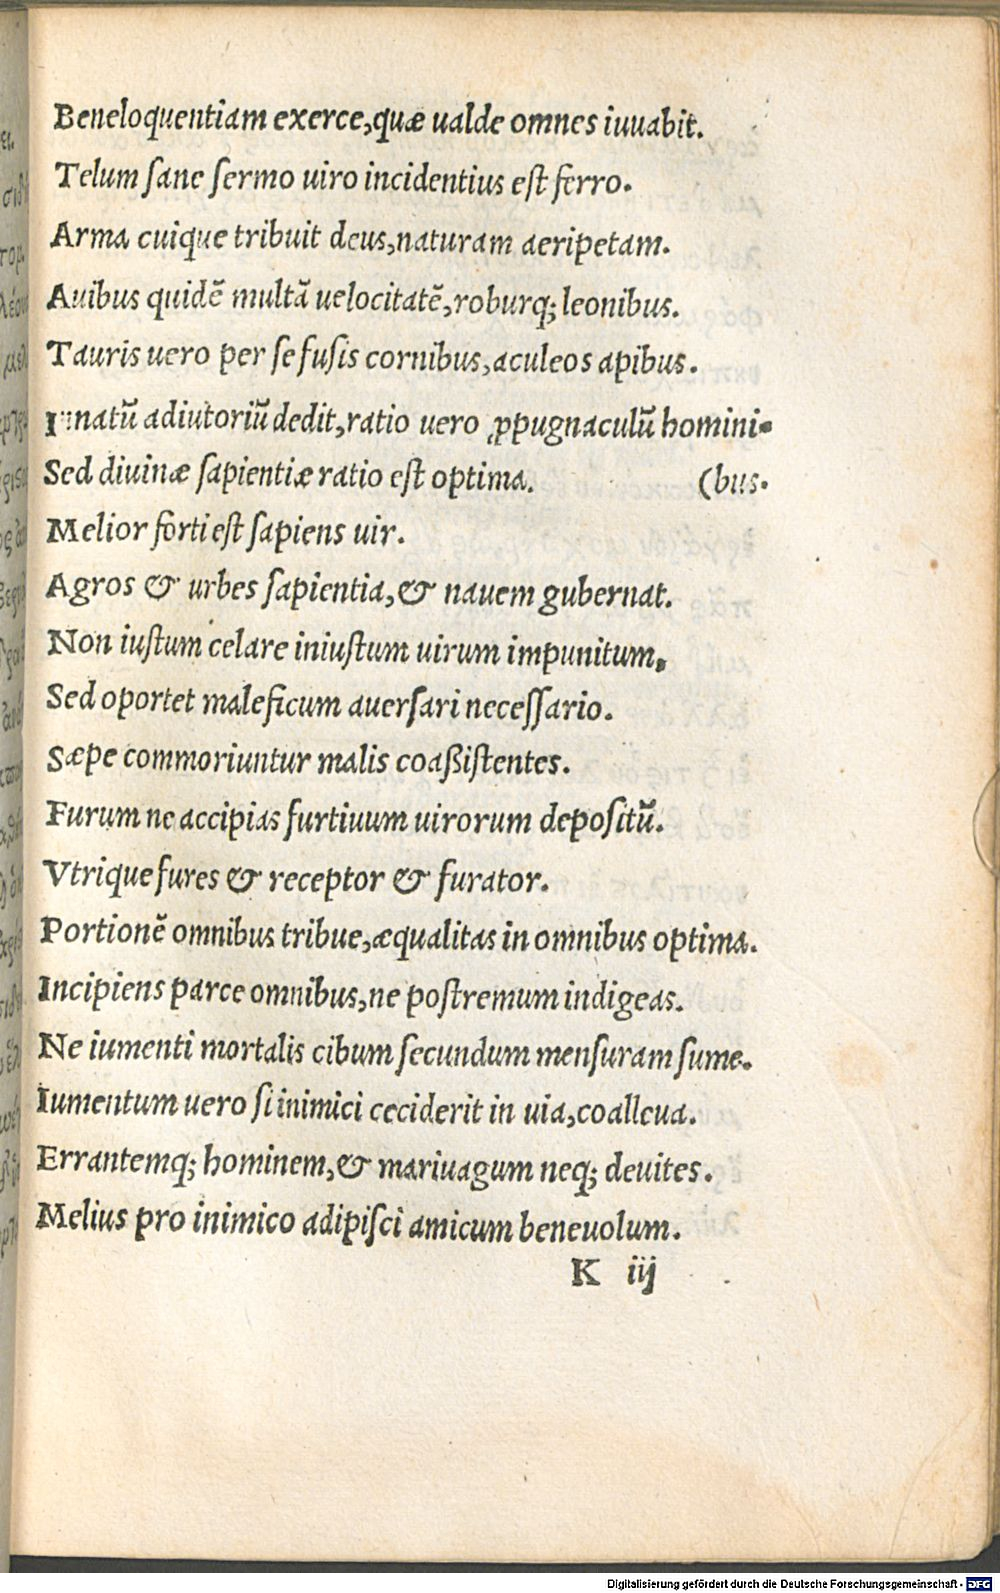 Beneloquentiam exerce,quæ ualde omnes iuuabit.
Telum ſane ſermo uiro incidentius eſt ferro.
Arma cuique tribuit deus,naturam aeripetam.
Auibus quidẽ multã uelocitatẽ,roburq; leonibus.
Tauris uero per ſe fuſis cornibus,aculeos apibus.
Innatũ adiutoriũ dedit,ratio uero ꝓpugnaculũ homini-
Sed diuinæ ſapientiæ ratio eſt optima. (bus.
Melior forti eſt ſapiens uir.
Agros & urbes ſapientia,& nauem gubernat.
Non iuſtum celare iniuſtum uirum impunitum,
Sed oportet maleficum auerſari neceſſario.
Sæpe commoriuntur malis coaßiſtentes.
Furum ne accipias furtiuum uirorum depoſitũ.
Vtrique fures & receptor & furator.
Portionẽ omnibus tribue,æqualitas in omnibus optima.
Incipiens parce omnibus,ne poſtremum indigeas.
Ne iumenti mortalis cibum ſecundum menſuram ſume.
Iumentum uero ſi inimici ceciderit in uia,coalleua.
Errantemq; hominem,& mariuagum neq; deuites.
Melius pro inimico adipiſci amicum beneuolum.
K iij
Digitalisierung gefördert durch die Deutsche Forschungsgemeinschaft - DFG